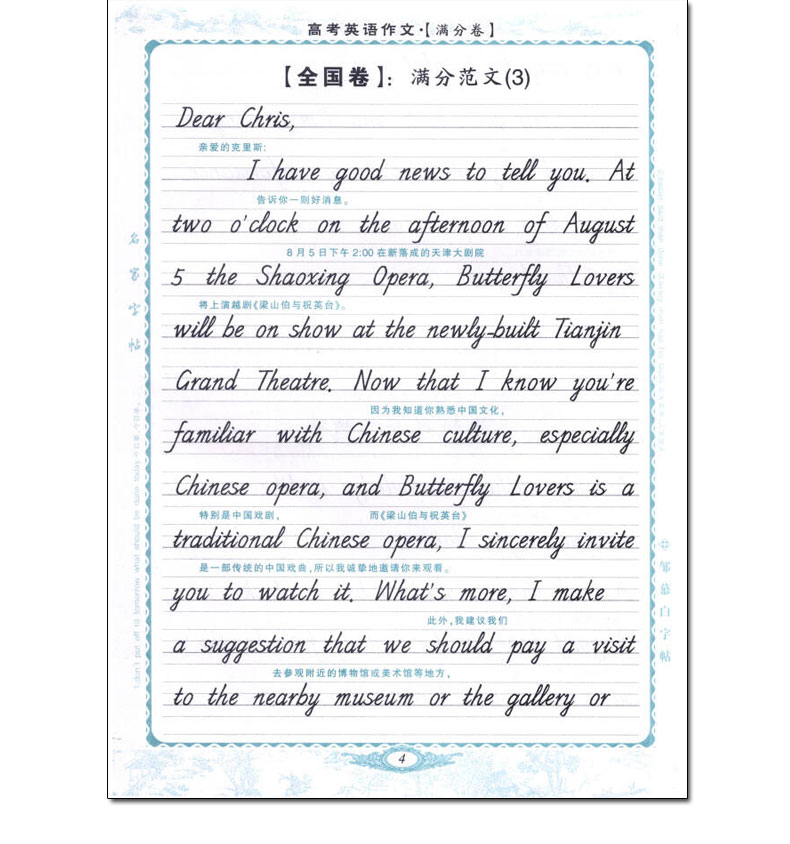 高考英语作文·【满分卷】
【全国卷】：满分范文(3)
Dear Chris,
亲爱的克里斯：
I have good news to tell you. At
告诉你一则好消息。
two o'clock on the afternoon of August
8月5日下午2:00在新落成的天津大剧院
5 the Shaoxing Opera, Butterfly Lovers
将上演越剧《梁山伯与祝英台》。
will be on show at the newly-built Tianjin
Grand Theatre. Now that I know you're
因为我知道你熟悉中国文化，
familiar with Chinese culture, especially
Chinese opera, and Butterfly Lovers is a
特别是中国戏剧， 而《梁山伯与祝英台》
traditional Chinese opera, I sincerely invite
是一部传统的中国戏曲，所以我诚挚地邀请你来观看。
you to watch it. What's more, I make
此外，我建议我们
a suggestion that we should pay a visit
去参观附近的博物馆或美术馆等地方，
to the nearby museum or the gallery or
4
名家字帖
邹慕白字帖